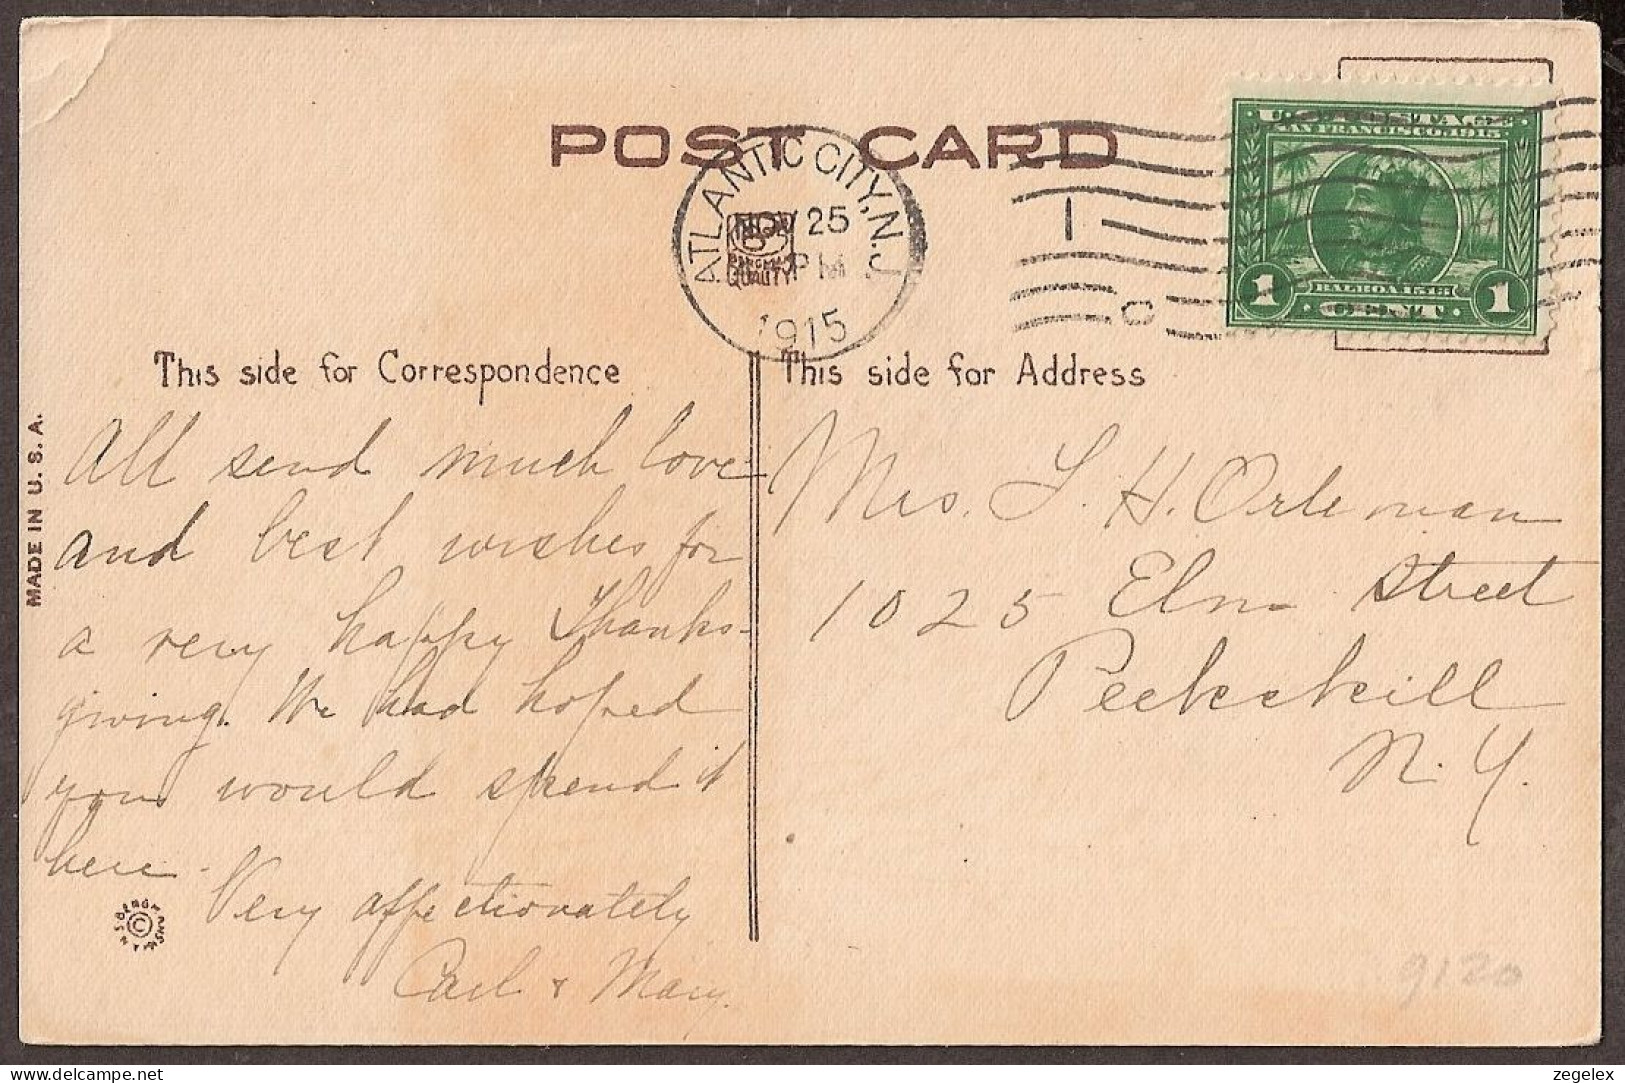 POST CARD
ATLANTIC CITY, N.J.
NOV 25
PM
1915
QUALITY
U.S. POSTAGE
SAN FRANCISCO, 1915
1 BALBOA 1513 1
CENT
This side for Correspondence
This side for Address
MADE IN U.S.A.
All send much love
and best wishes for
a very happy Thanks-
giving. We had hoped
you would spend it
here.
Very affectionately
Carl & Mary.
Mrs. L. H. Orleman
1025 Elm Street
Peekskill
N.Y.
©
9120
zegelex.be
zegelex